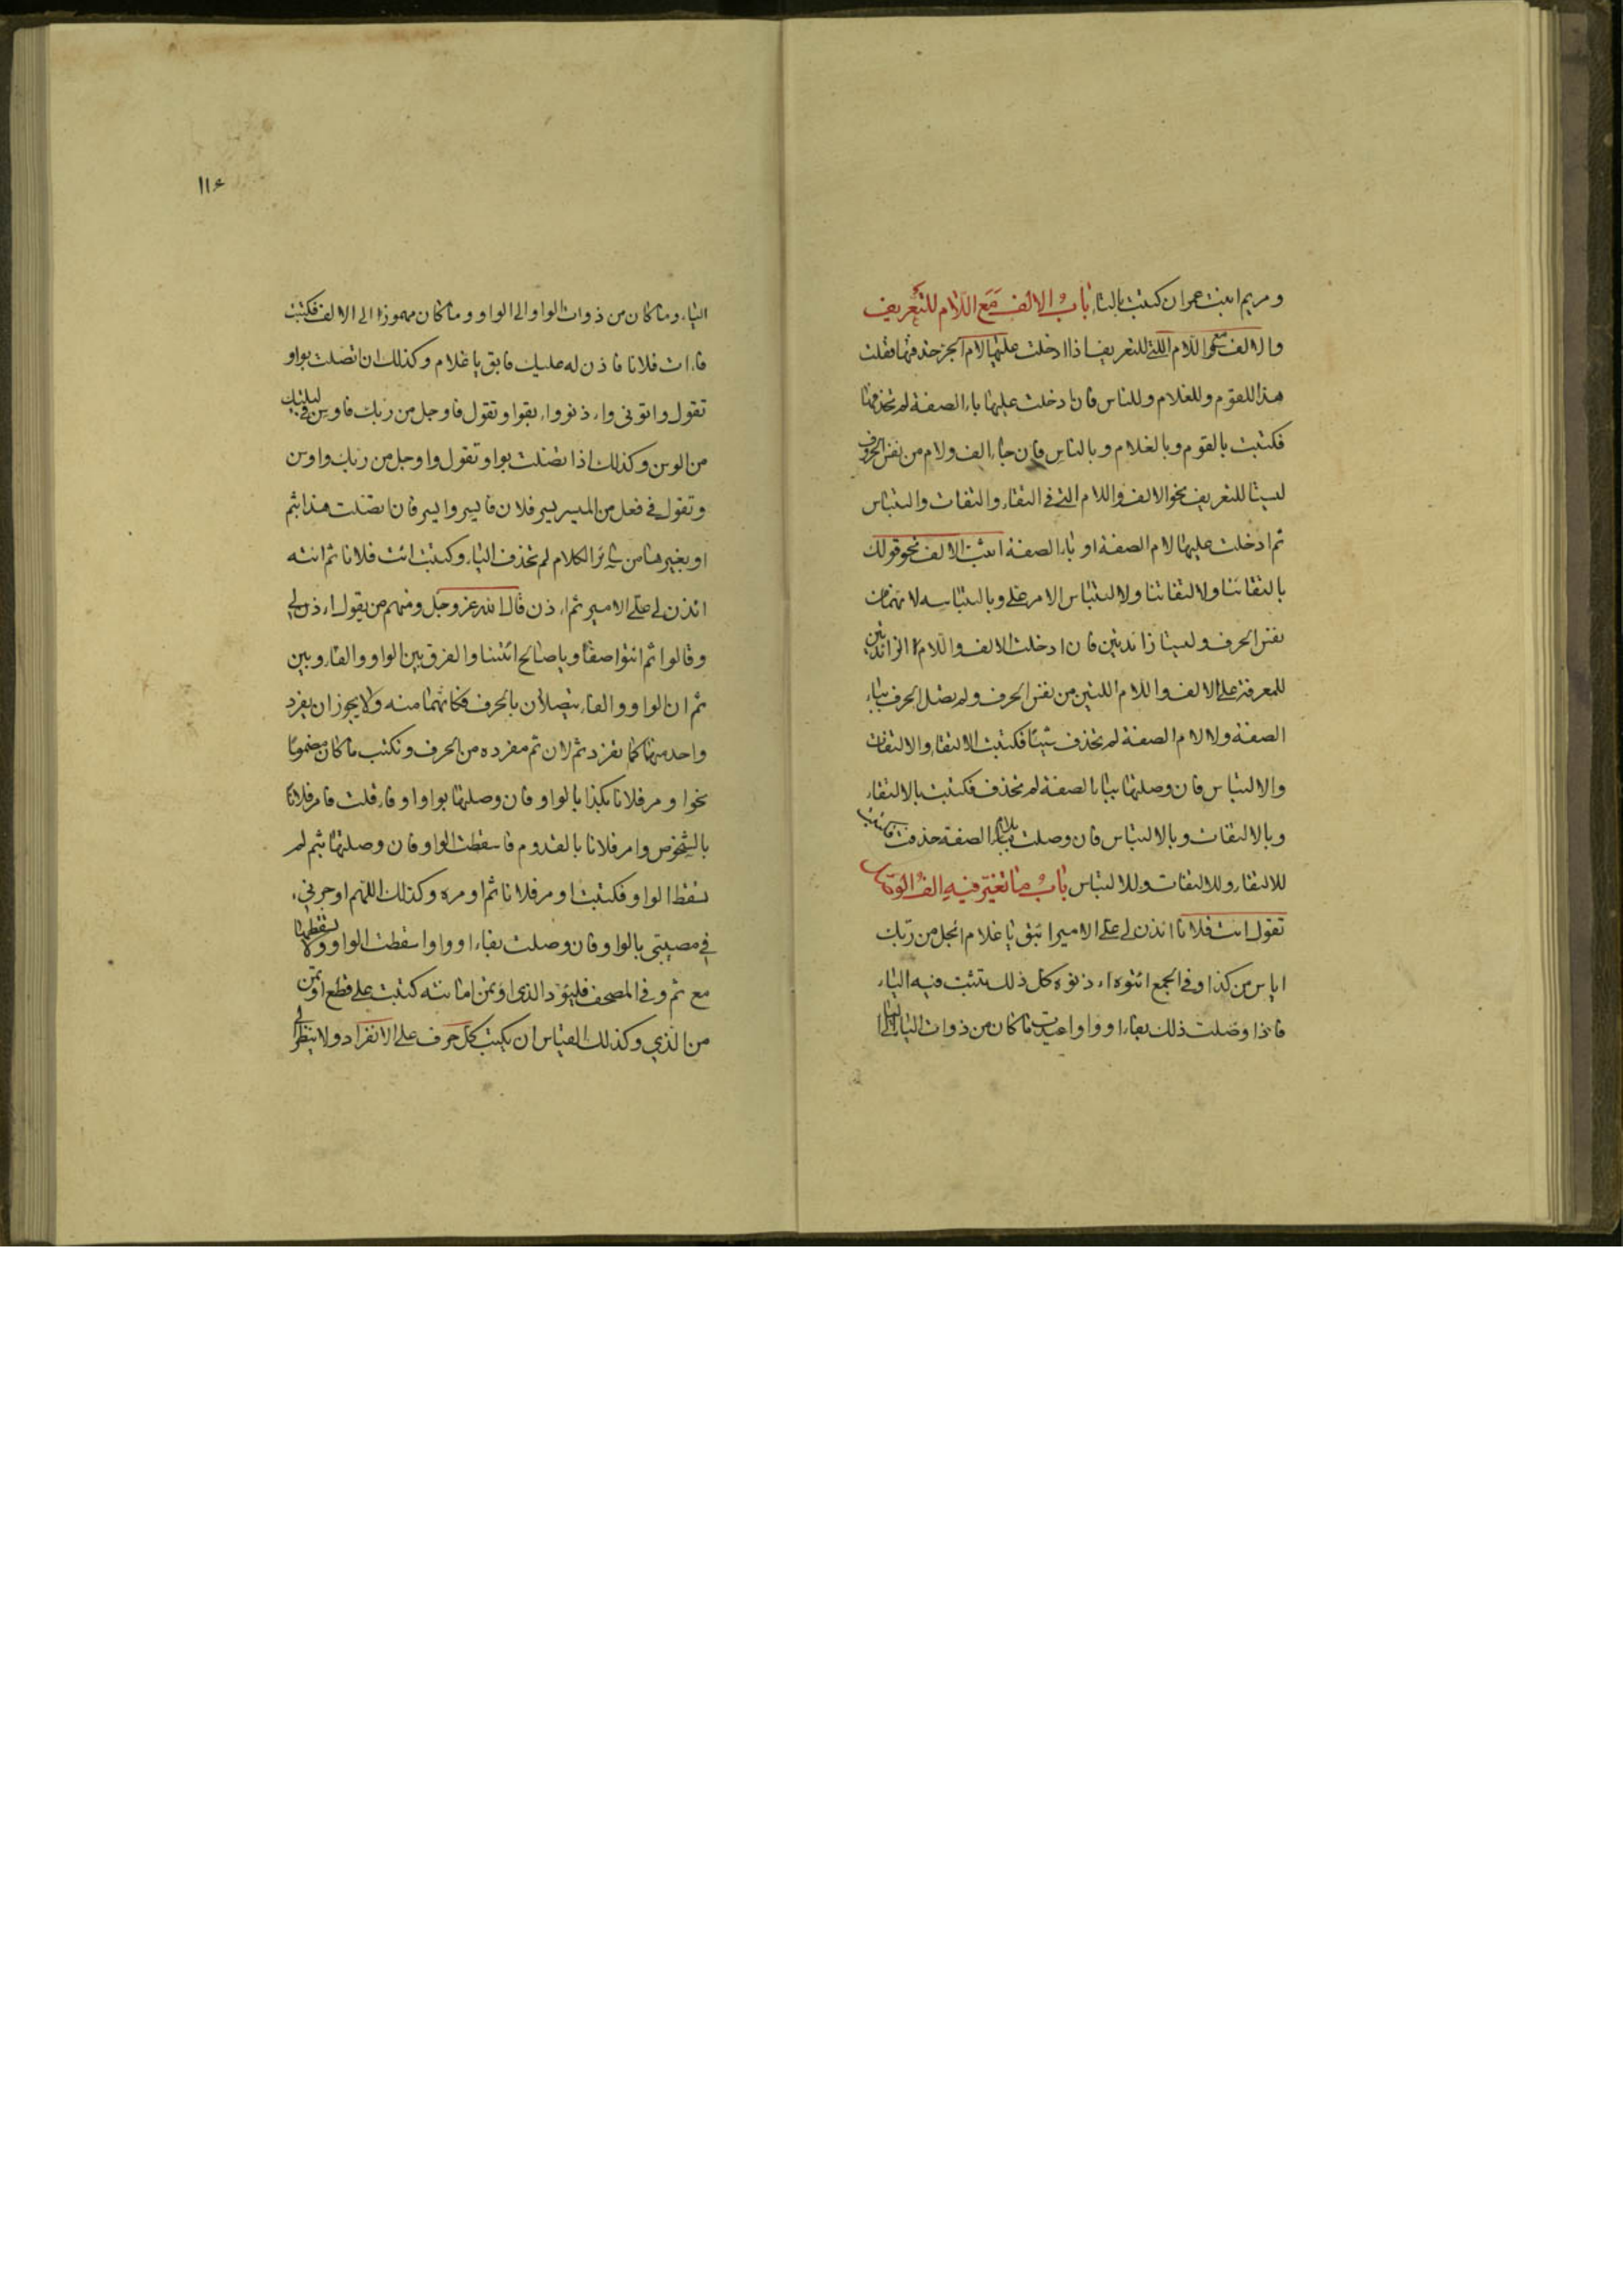 ومريم ابنت عمران كتبت بالتاء باب الالف مع اللام للتعريف
والالف مع اللام اللتي للتعريف اذا ادخلت عليها لام الجر حذفتها فقلت
هذا للقوم وللغلام وللناس فان ادخلت عليها باء الصفة لم تحذفها
فكتبت بالقوم وبالغلام وبالناس فان جاء الف ولام من نفس الحروف
ليستا للتعريف نحو الالف واللام التي في التقاء والتفات والتباس
ثم ادخلت عليها لام الصفة او باء الصفة اثبت الالف نحو قولك
بالتقائنا ولالتفاتنا ولالتباس الامر علي وبالتباسه لانهما من
نفس الحرف وليستا زائدتين فان ادخلت الالف واللام الزائدتين
للمعرفة على الالف واللام اللتين من نفس الحرف ولم يصل الحرف بباء
الصفة ولا لام الصفة لم تحذف شيئا فكتبت الالتقاء والالتفات
والالتباس فان وصلتها بباء الصفة لم تحذف فكتبت بالالتقاء
وبالالتفات وبالالتباس فان وصلت بلام الصفة حذفت فكتبت
للالتقاء وللالتفات وللالتباس باب ما تغير فيه الف الوصل
تقول ائت فلانا ائذن لي على الامير ائبق يا غلام ائجل من ربك
اياس من كذا وفي الجمع ائتوه اءذنوه كل ذلك تثبت فيه الياء
فاذا وصلت ذلك بفاء او واو اعدت ما كان من ذوات الياء الى
١١٤
الياء وما كان من ذوات الواو الى الواو وما كان مهموزا الى الالف فكتبت
فاءت فلانا فاذن له عليك فابق يا غلام وكذلك ان اتصلت بواو
تقول واتوني واءذنوا واءبقوا وتقول فاوجل من ربك فاوسن في ليلتك
من الوسن وكذلك اذا اتصلت بواو وتقول واوجل من ربك واوسن
وتقول في فعل من الميسر يسر فلان فايسر وايسر فان اتصلت هذا بثم
او بغيرها من سائر الكلام لم تحذف الياء وكتبت ائت فلانا ثم ائته
ائذن لي على الامير ثم اءذن قال الله عز وجل ومنهم من يقول اءذن لي
وقالوا ثم ائتوا صفا ويا صالح ائتنا والفرق بين الواو والفاء وبين
ثم ان الواو والفاء يتصلان بالحرف فكانهما منه ولا يجوز ان يفرد
واحد منهما كما يفرد ثم لان ثم مفرده من الحرف وتكتب ما كان مضموما
نحو اومر فلانا بكذا بالواو فان وصلتها بواو او فاء قلت فامر فلانا
بالشخوص وامر فلانا بالقدوم فاسقطت الواو فان وصلتها بثم لم
تسقط الواو فكتبت اومر فلانا ثم اومره وكذلك اللهم اوجرني
في مصيبتي بالواو فان وصلت بفاء او واو اسقطت الواو ولا تسقطها
مع ثم وفي المصحف فليؤد الذي اؤتمن امانته كتبت على قطع اؤتمن
من الذي وكذلك القياس ان يكتب كل حرف على الانفراد ولا ينظر الى